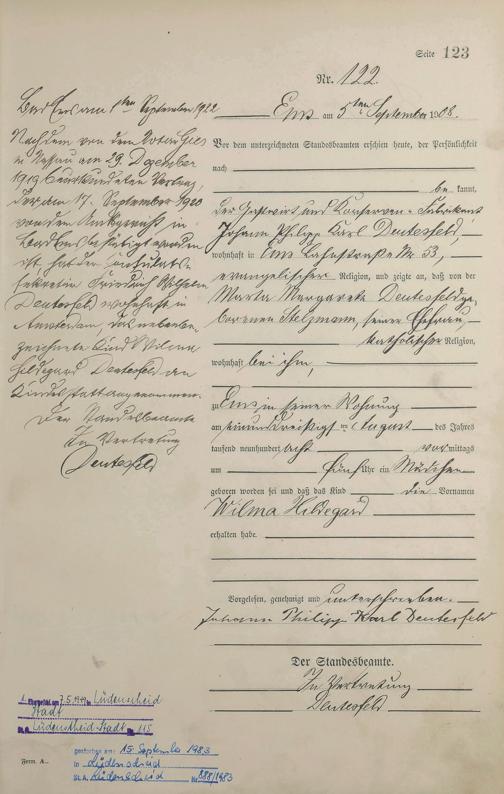 Seite 123
Nr. 122
Ems am 5ten September 1908.
Vor dem unterzeichneten Standesbeamten erschien heute, der Persönlichkeit
nach
be kannt,
der Gastwirt und Konserven-Fabrikant
Johann Philipp Karl Deutesfeld,
wohnhaft in Ems Lahnstraße Nr. 53,
evangelischer Religion, und zeigte an, daß von der
Marta Margareta Deutesfeld ge-
borenen Stelzmann, seiner Ehefrau,
katholischer Religion,
wohnhaft bei ihm,
zu Ems in seiner Wohnung
am einunddreißigsten August des Jahres
tausend neunhundert acht vormittags
um fünf Uhr ein Mädchen
geboren worden sei und daß das Kind die Vornamen
Wilma Hildegard
erhalten habe.
Vorgelesen, genehmigt und unterschrieben.
Johann Philipp Karl Deutesfeld
Der Standesbeamte.
In Vertretung
Deutesfeld
Bad Ems am 1ten September 1922
Nachdem von dem Notar
in Nassau am 29. Dezember
1919 beurkundeten Vertrag,
der am 17. September 1920
von dem Amtsgericht in
Bad Ems bestätigt worden
ist, hat der
sekretär Friedrich Wilhelm
Deutesfeld wohnhaft in
Amsterdam, das nebenbe-
zeichnete Kind Wilma
Hildegard Deutesfeld an
Kindesstatt angenommen.
Der Standesbeamte
In Vertretung
Deutesfeld
7.5.1941 in Lüdenscheid
Stadt
St.A. Lüdenscheid-Stadt 115
gestorben am: 15. September 1983
in Lüdenscheid
St.A. Lüdenscheid Nr. 888/1983
Form. A.